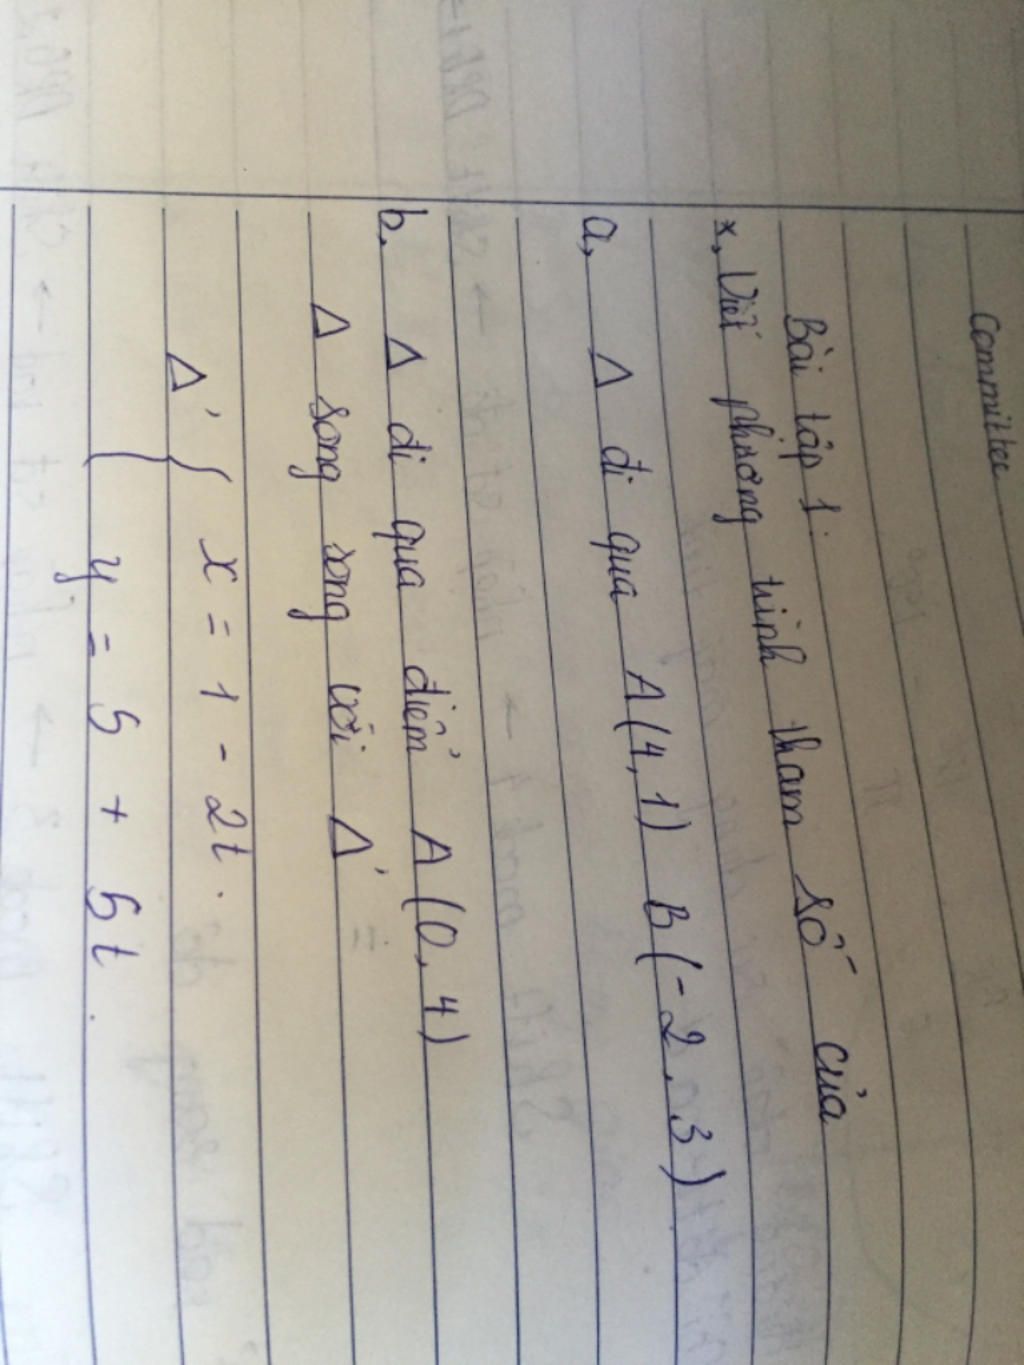 Committee
Bài tập 1.
*, Viết phương trình tham số của
a, Δ đi qua A(4,1) B(-2,3)
b, Δ đi qua điểm A(0,4)
Δ song song với Δ' =
Δ' { x = 1 - 2t.
y = 5 + 5t.